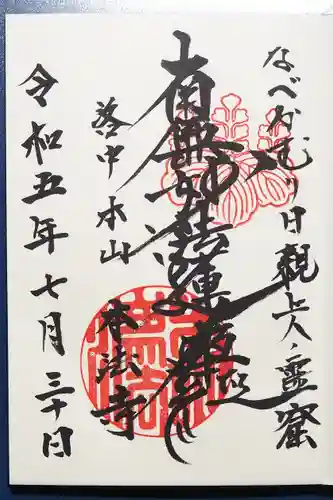 なべかむり日親上人ノ霊窟
南無妙法蓮華経
洛中本山
本法寺
令和五年七月三十日